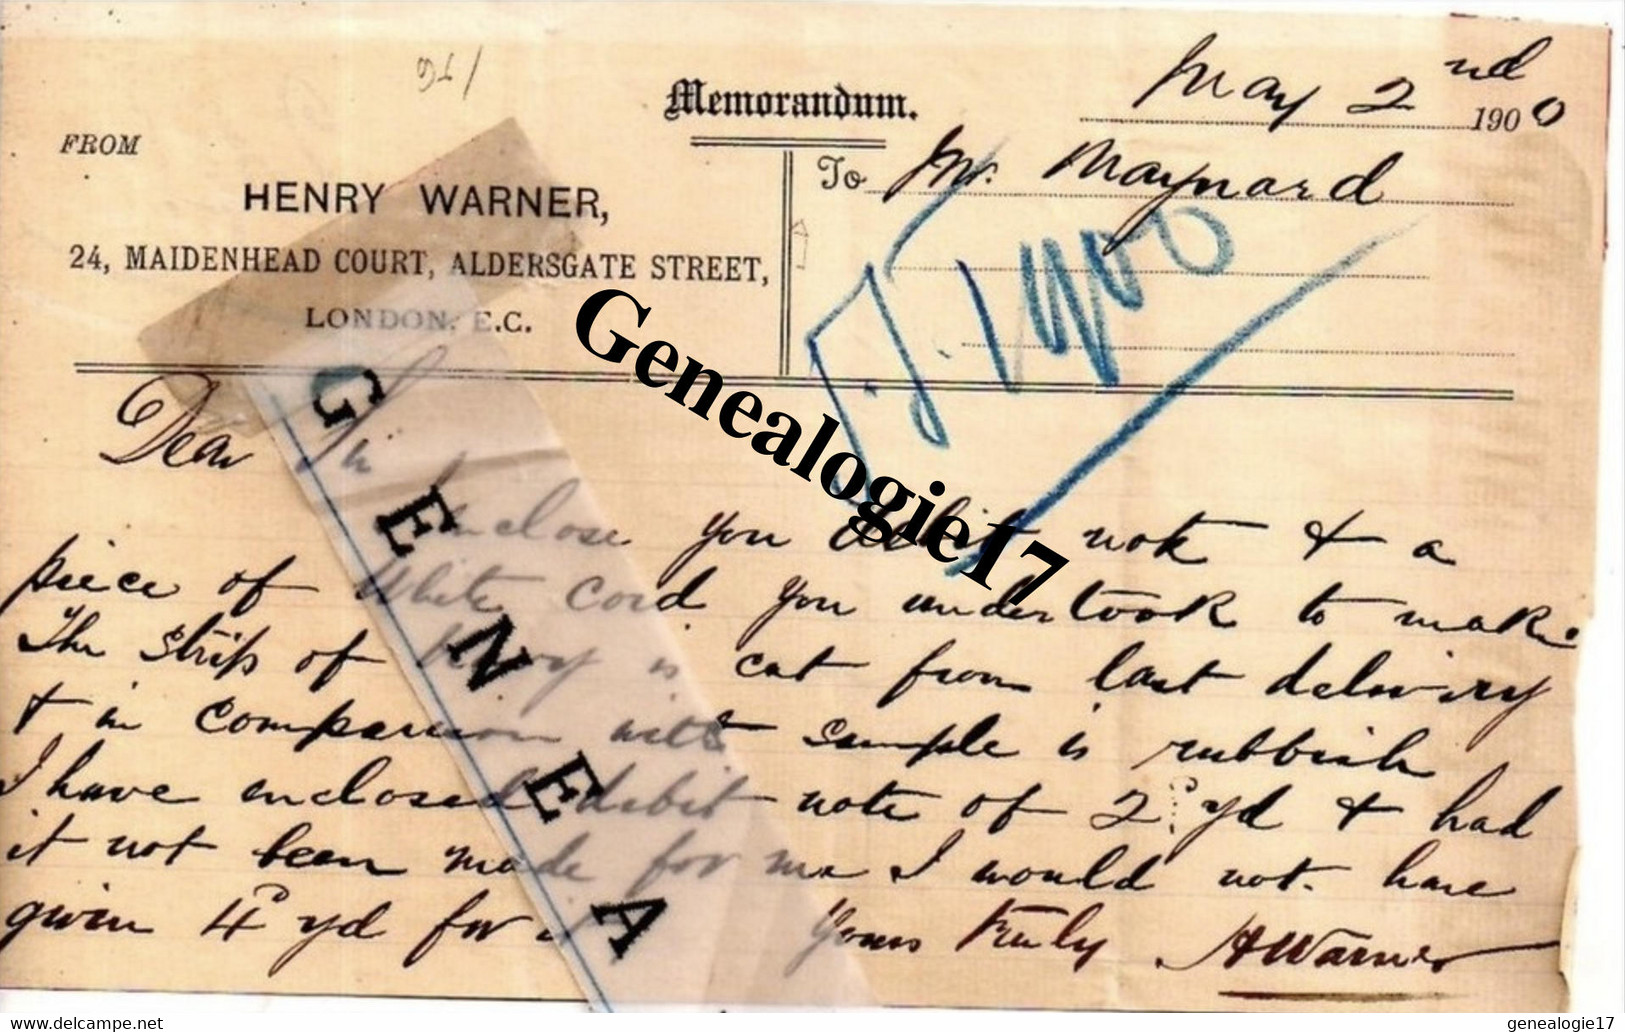 96/
Memorandum.
May 2nd 1900
FROM
HENRY WARNER,
24, MAIDENHEAD COURT, ALDERSGATE STREET,
LONDON. E.C.
To Mr. Maynard
1900
Dear Sir
Enclose you debit note & a
piece of White Cord you undertook to make.
The strip of is cut from last delivery
& in comparison with sample is rubbish
I have enclosed debit note of 2d yd & had
it not been made for me I would not. have
given 4d yd for it Yours Truly HWarner
Genealogie17
GENEA
www.delcampe.net
genealogie17